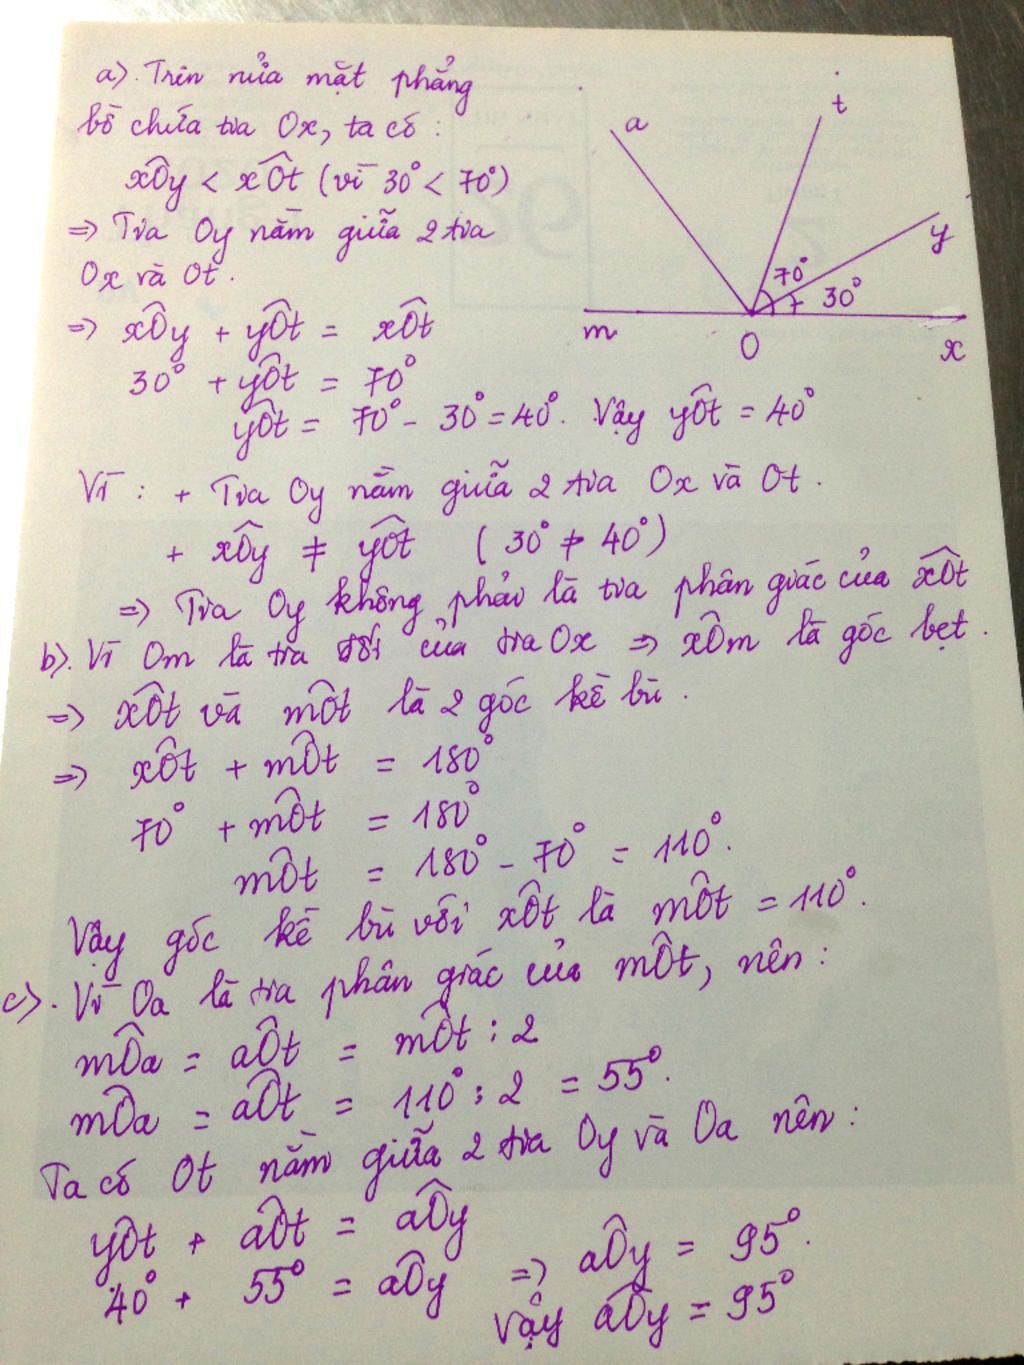 a). Trên nửa mặt phẳng
bờ chứa tia Ox, ta có :
xÔy < xÔt (vì 30° < 70°)
=> Tia Oy nằm giữa 2 tia
Ox và Ot.
=> xÔy + yÔt = xÔt
30° + yÔt = 70°
yÔt = 70° - 30° = 40°. Vậy yÔt = 40°
a
t
y
70°
30°
m
O
x
Vì : + Tia Oy nằm giữa 2 tia Ox và Ot.
+ xÔy ≠ yÔt (30° ≠ 40°)
=> Tia Oy không phải là tia phân giác của xÔt
b). Vì Om là tia đối của tia Ox => xÔm là góc bẹt.
=> xÔt và mÔt là 2 góc kề bù.
=> xÔt + mÔt = 180°
70° + mÔt = 180°
mÔt = 180° - 70° = 110°.
Vậy góc kề bù với xÔt là mÔt = 110°.
c). Vì Oa là tia phân giác của mÔt, nên :
mÔa = aÔt = mÔt : 2
mÔa = aÔt = 110° : 2 = 55°.
Ta có Ot nằm giữa 2 tia Oy và Oa nên :
yÔt + aÔt = aÔy
40° + 55° = aÔy => aÔy = 95°.
Vậy aÔy = 95°